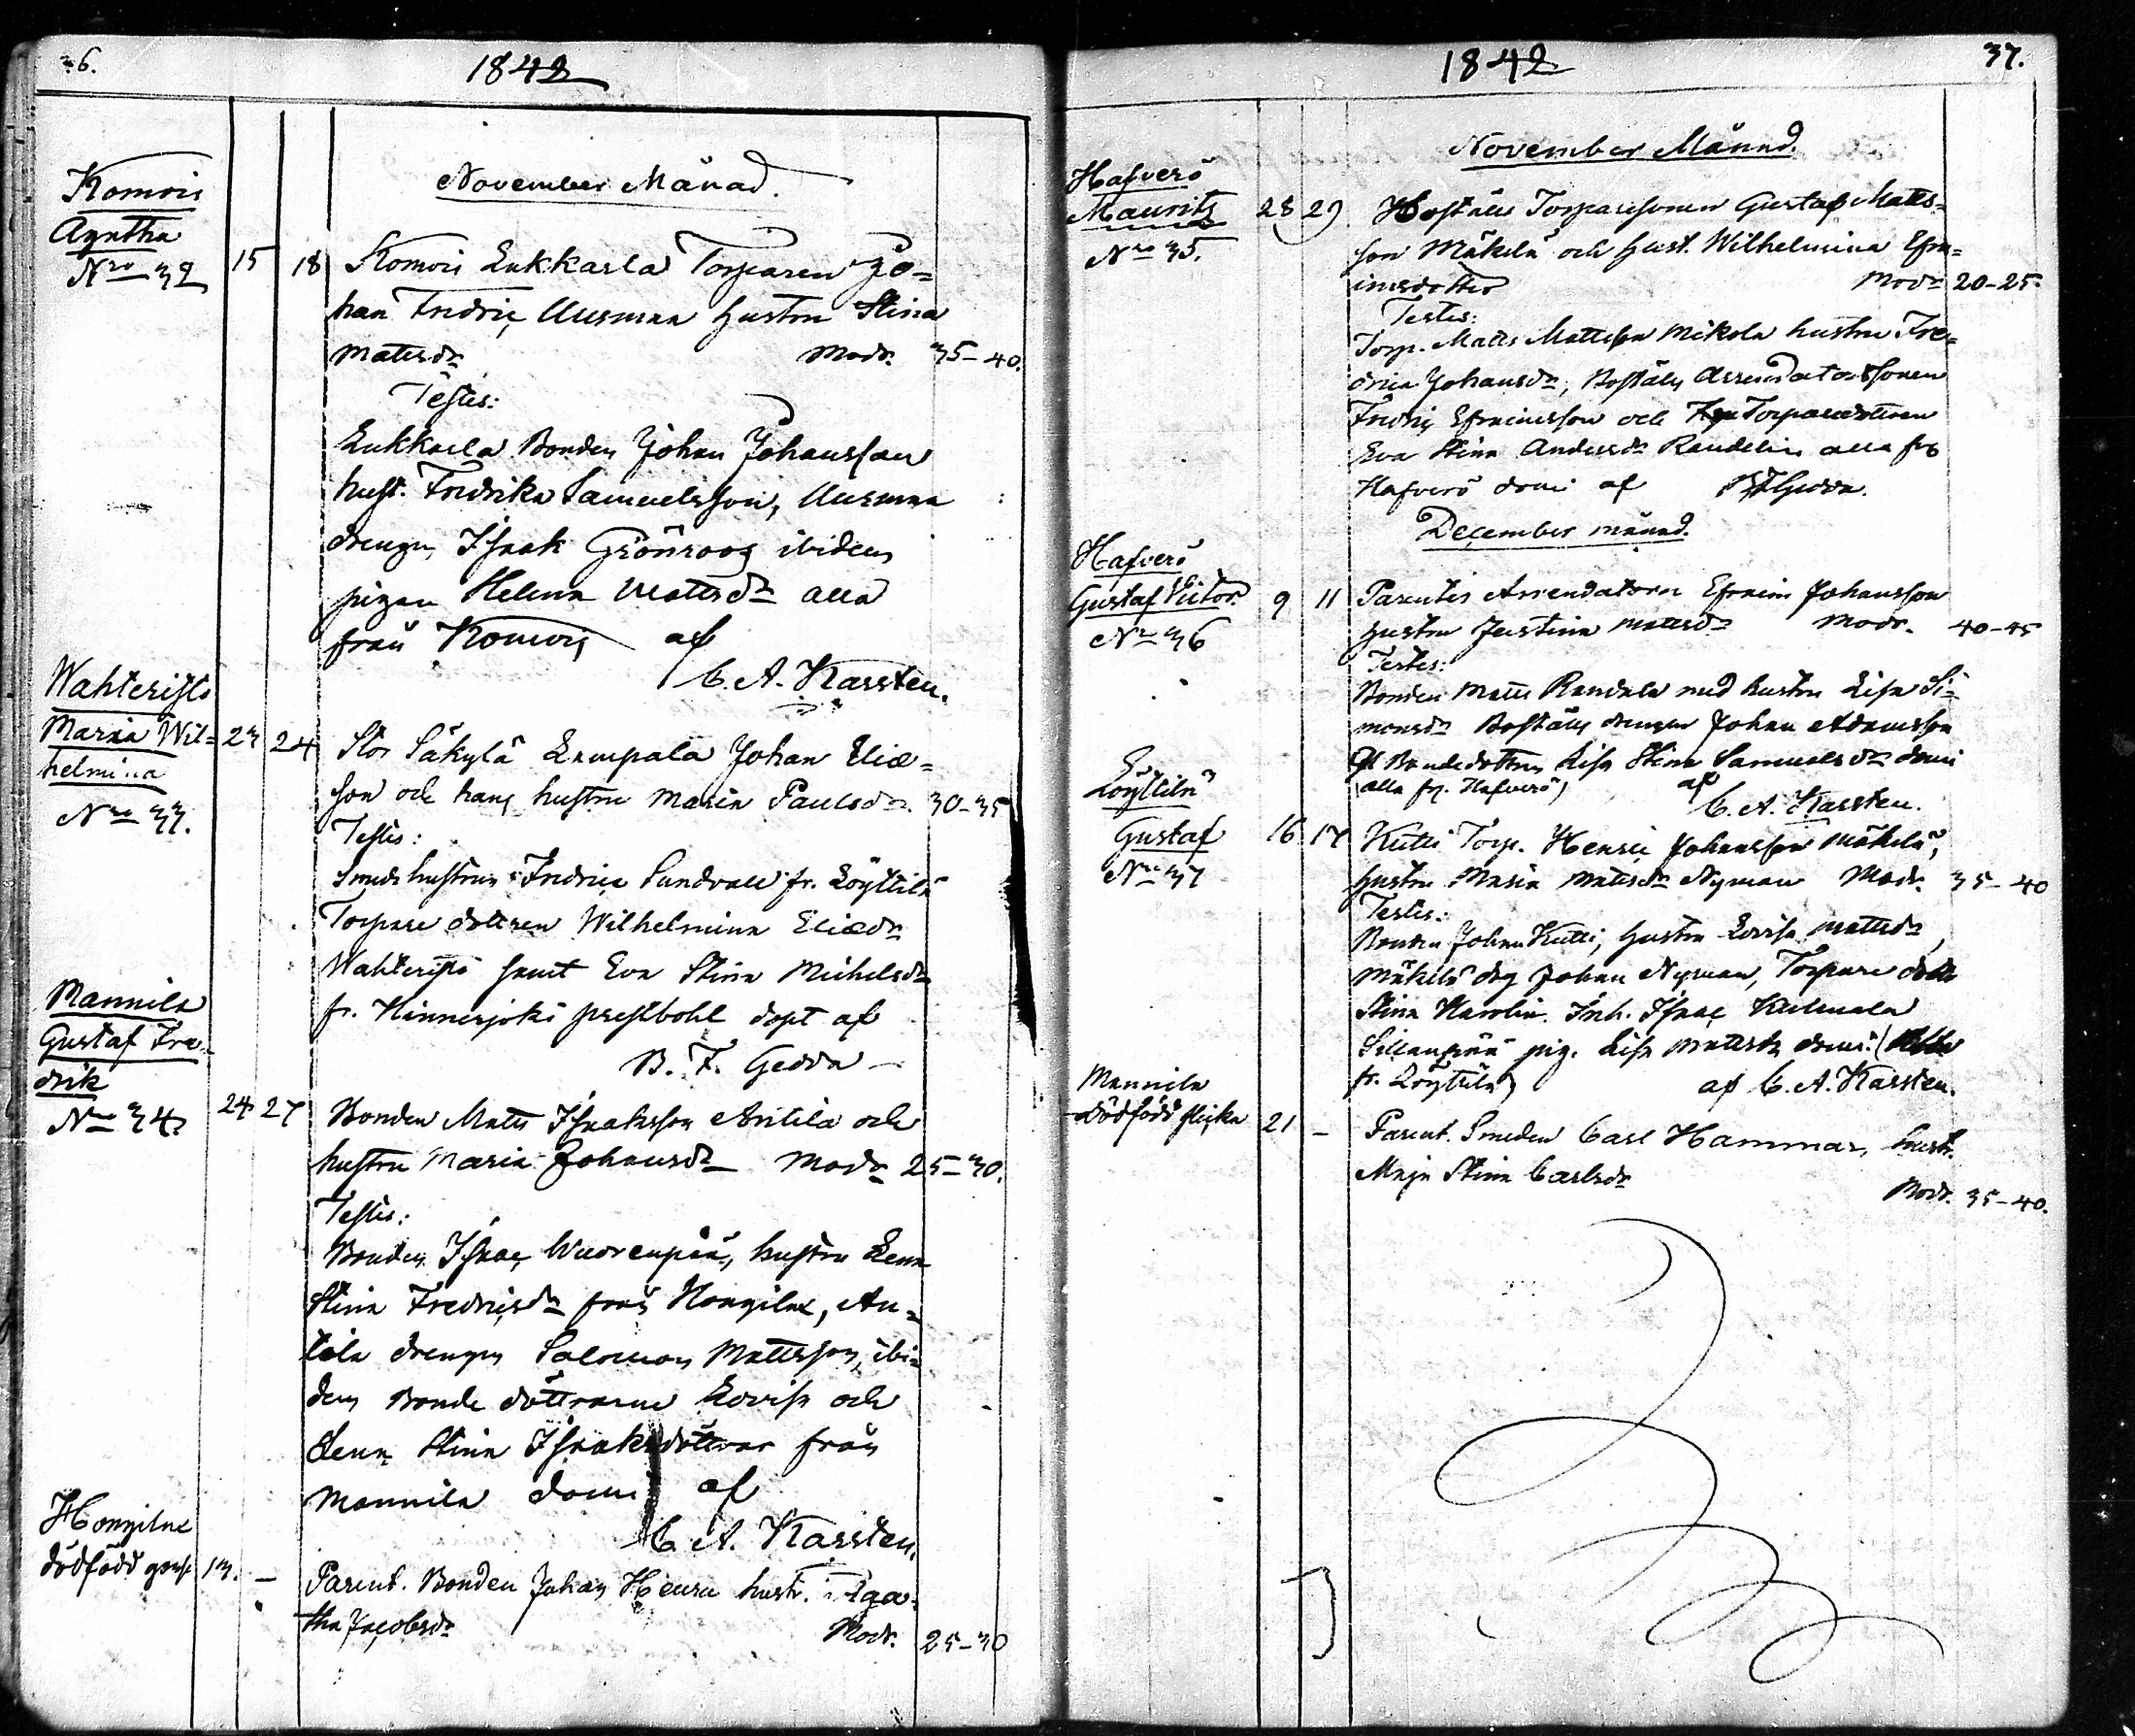 36.
1842
November Månad.
Komois
Agatha
Nro 32
15 18 Komois Lukkarla Torparen Jo=
han Fredric Uusmaa hustru Stina
Matsdr Modr. 35-40.
Testes:
Lukkarla Bonden Johan Johansson
hust. Fredrika Samuelsson, Uusmaa
drengen Isaak Grönroos ibidem
pigan Helena Mattsdr alla
från Komois af
C. A. Karsten.
Wahteristo
Maria Wil=
helmina
Nro 33.
23 24 Stor Säkylä Lempala Johan Eliæ=
son och hans hustru Maria Paulsdr. 30-35
Testes:
Smeds hustrun Fredrica Sundvall fr. Löyttilä
Torpare dottren Wilhelmina Eliædr
Wahteristo samt Eva Stina Michelsdr
fr. Hinnerjoki prestbohl döpt af
B. F. Gedda
Mannila
Gustaf Fre=
drik
Nro 34.
24 27 Bonden Matts Isaaksson Antila och
hustru Maria Johansdr Modr 25-30.
Testes:
Bonden Isaac Wuorenpää, hustru Lena
Stina Fredricsdr från Hongilax, An=
tila drengen Salomon Mattsson, ibi=
dem Bonde döttrarne Lovisa och
Lena Stina Isaksdöttrar från
Mannila domi af
C. A. Karsten.
Hongilax
dödfödd gosse
13. — Parent. Bonden Johan Heusu hustr. Aga=
tha Jacobsdr Modr. 25-30
37.
1842
November Månad.
Hafverö
Mauritz
Nro 35.
28 29 Boställs Torparesonen Gustaf Matts=
son Mäkelä och hust. Wilhelmina Efra=
imsdotter Modr 20-25
Testes:
Torp. Matts Mattsson Mikola hustru Fre=
drica Johansdr, Boställs Arrendatorssonen
Fredric Efraimsson och Torparedottren
Eva Stina Andersdr Randelin alla fr
Hafverö domi af B F Gedda.
December månad.
Hafverö
Gustaf Victor.
Nro 36
9 11 Parentes Arrendatorn Efraim Johansson
hustru Justina Mattsdr Modr. 40-45
Testes:
Bonden Matts Randala med hustru Lisa Si=
monsdr Boställs drengen Johan Adamsson
Bondedottren Lisa Stina Samuelsdr domi
(alla fr. Hafverö) af
C. A. Karsten.
Löyttilä
Gustaf
Nro 37
16 17 Kutti Torp. Henric Johansson Mäkelä,
hustru Maria Mattsdr Nyman Modr. 35-40
Testes:
Bonden Johan Kutti, hustru Lovisa Mattsdr,
Mäkelä drg Johan Nyman, Torpare dottr
Stina Karolin. Inh. Isaac
Sillanpää pig. Lisa Mattsdr domi. (Alla
fr. Löyttilä) af C. A. Karsten.
Mannila
dödfödd flicka
21 — Parent. Smeden Carl Hammar, hustr.
Maja Stina Carlsdr
Modr. 35-40.